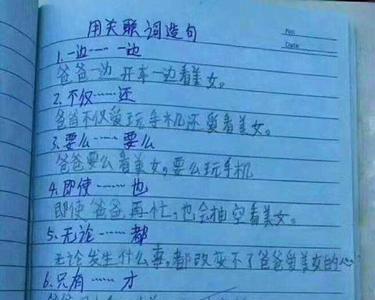 用关联词造句
No.
Date
1.一边……一边
爸爸一边开车一边看美女。
2.不仅……还
爸爸不仅爱玩手机还爱看美女。
3.要么……要么
爸爸要么看美女,要么玩手机
4.即使……也
即使爸爸再忙,也会抽空看美女。
5.无论……都
无论发生什么事,都改变不了爸爸爱美女的心
6.只有……才